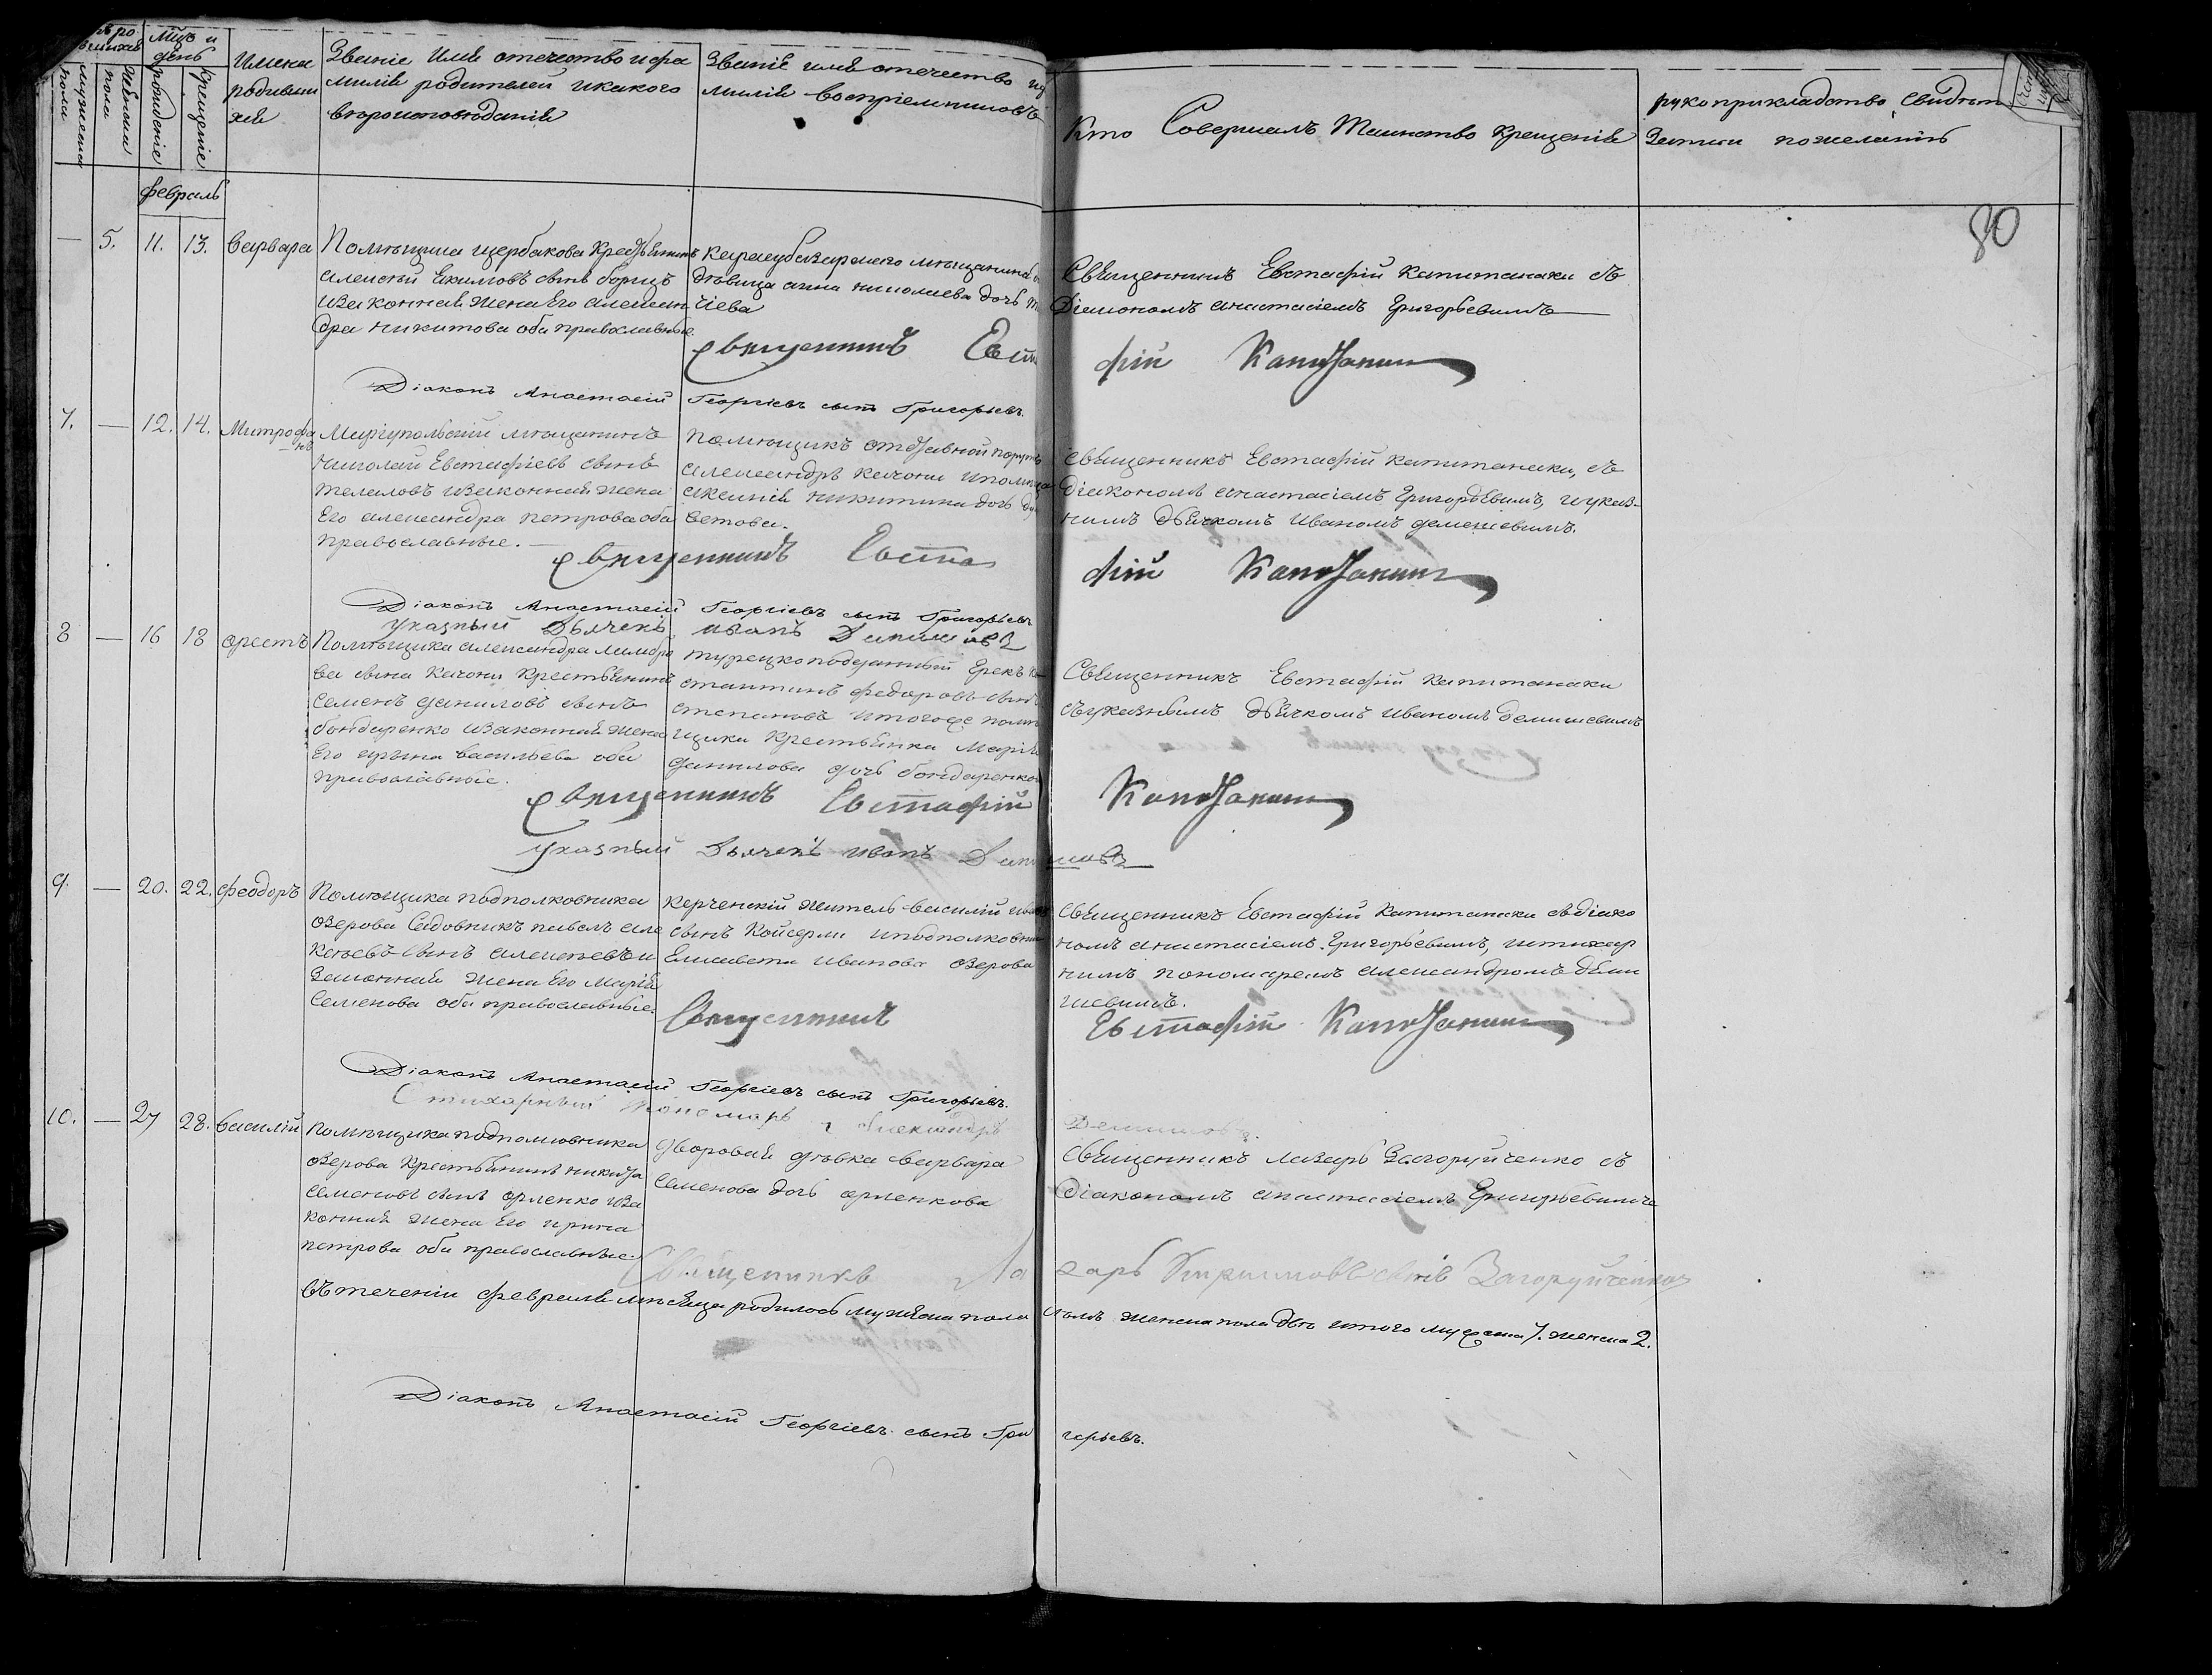 Мѣс и
день
мужеска
пола
женска
пола
рожденіе
крещеніе
Имена
родивши
хся
Званіе Имя отечество и фа
миліи родителей и какого
вероисповѣданія
Званіе имя отечество и
миліи воспріемниковъ
Кто Совершалъ Таинство Крещенія
рукоприкладство свидѣт
Записи по желанію
80
февраль
— 5. 11. 13. Варвара
Помѣщика Щербакова Крестьянинъ
Алексѣй Екимовъ сынъ борщъ
и Законная Жена Его Алексан
дра Никитова оба православные.
Карасубазарского мѣщанина
дѣвица Анна Николаева дочь
чіева
Священникъ Евстафій Капитанаки съ
Діакономъ Анастасіемъ Григорьевимъ
Священникъ Евста
фій Капитанаки
Діаконъ Анастасій Георгіевъ сынъ Григорьевъ.
7. — 12. 14. Митрофа
нъ
Маріупольскій мѣщанинъ
Николай Евстафіевъ сынъ
Телаловъ и Законная жена
Его Александра Петрова оба
православные.
помѣщикъ отставной поручи
Александръ Качони и помѣща
Аксинія Никитина дочь
ветова.
Священникъ Евстафій Капитанаки, съ
діакономъ Анастасіемъ Григорьевимъ, и указ-
нимъ дьячкомъ Иваномъ Демешевимъ.
Священникъ Евста
фій Капитанаки
Діаконъ Анастасій Георгіевъ сынъ Григорьевъ
указный Дьячекъ иванъ Демишевъ
8 — 16 18 Орестъ
Помѣщика Александра Ламбро
ва сына Качони Крестьянинъ
Семенъ Даниловъ сынъ
бондаренко и Законная Жена
Его Ирина Васильева оба
православные.
турецкоподданный Грекъ Ко
стантинъ Федоровъ сынъ
Степановъ и тогоже помѣ
щика Крестьянка Марія
Данилова дочь бондаренкова
Священникъ Евстафій Капитанаки
съ указнымъ дьячкомъ Иваномъ Демишевимъ
Священникъ Евстафій Капитанаки
указный Дьячекъ иванъ Демишевъ
9. — 20. 22. Феодоръ
Помѣщика подполковника
Озерова Садовникъ павелъ Але
ксѣевъ сынъ Алексѣевъ и
Законная Жена Его Марія
Семенова оба православные.
Керченскій житель Василій Ива
сынъ Койсерли и подполковни
Елисавета Иванова Озерова
Священникъ Евстафій Капитанаки съ діако
номъ Анастасіемъ Григорьевимъ, и стихар
нимъ пономаремъ Александромъ Деми
шевимъ.
Священникъ
Евстафій Капитанаки
Діаконъ Анастасій Георгіевъ сынъ Григорьевъ.
Стихарный Пономарь Александръ
Демишовъ.
10. — 27 28. Василій
помѣщика подполковника
Озерова Крестьянинъ Никита
Семеновъ сынъ Орленко и За
конная Жена Его Ирина
Петрова оба православные.
дворовая дѣвка Варвара
Семенова дочь Орленкова
Священникъ Лазарь Загоруйченко съ
Діакономъ Анастасіемъ Григорьевимъ
Священникъ Ла
зарь сынъ Загоруйченко
Въ теченіи Февраля мѣсяца родилось Мужеска пола
семь женска пола двѣ итого мужеска 7. женска 2.
Діаконъ Анастасій Георгіевъ сынъ Гри
горьевъ.